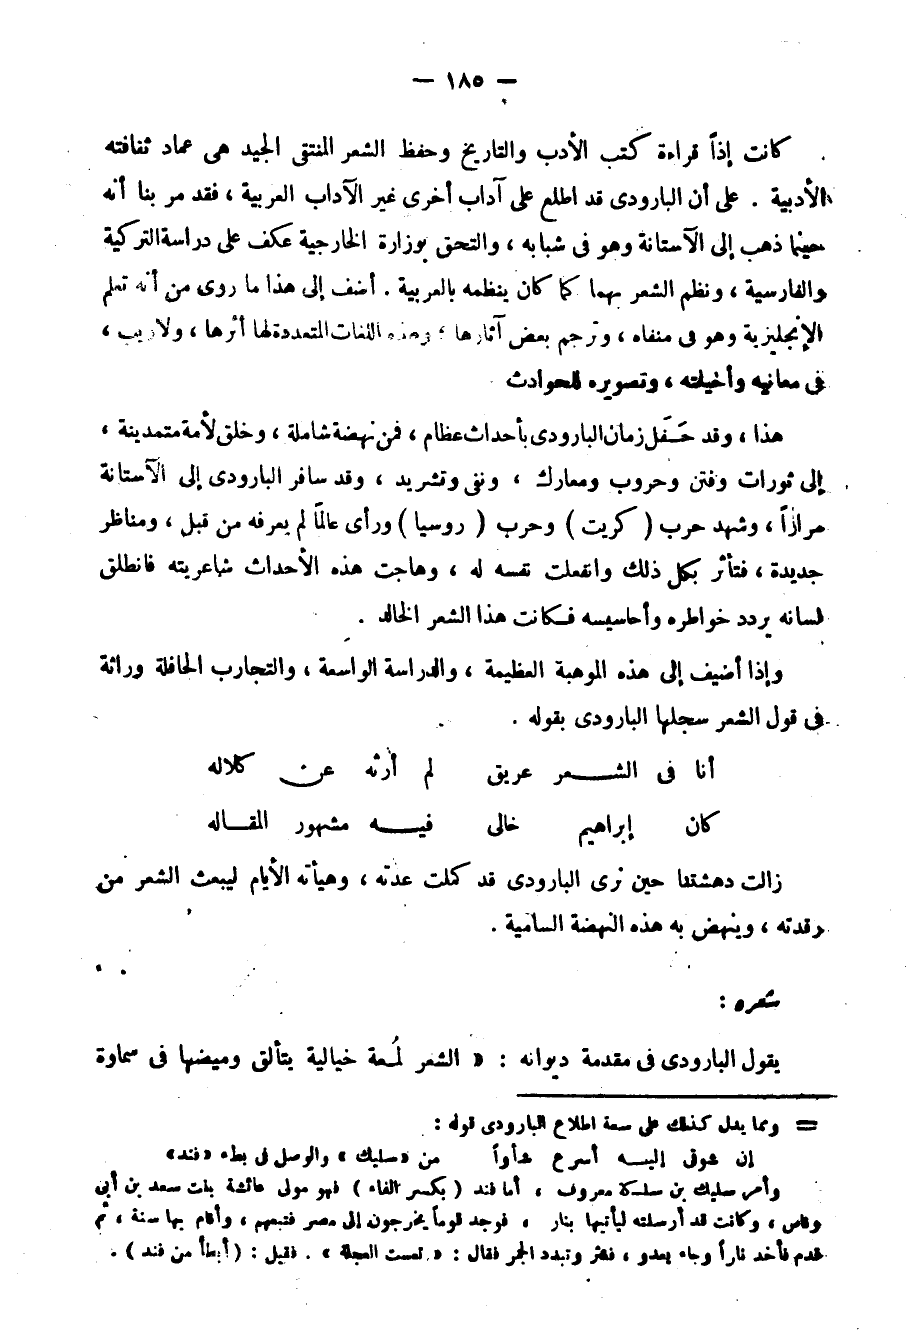 — ١٨٥ —
كانت إذاً قراءة كتب الأدب والتاريخ وحفظ الشعر المنتقى الجيد هى عماد ثقافته
الأدبية . على أن البارودى قد اطلع على آداب أخرى غير الآداب العربية ، فقد مر بنا أنه
حينما ذهب إلى الآستانة وهو فى شبابه ، والتحق بوزارة الخارجية عكف على دراسة التركية
والفارسية ، ونظم الشعر بهما كما كان ينظمه بالعربية . أضف إلى هذا ما روى من أنه تعلم
الإنجليزية وهو فى منفاه ، وترجم بعض آثارها ؛ وهذه اللغات المتعددة لها أثرها ، ولا ريب ،
فى معانيه وأخيلته ، وتصويره للحوادث
هذا ، وقد حَفَل زمان البارودى بأحداث عظام ، فمن نهضة شاملة ، وخلق لأمة متمدينة ،
إلى ثورات وفتن وحروب ومعارك ، ونفى وتشريد ، وقد سافر البارودى إلى الآستانة
مراراً ، وشهد حرب ( كريت ) وحرب ( روسيا ) ورأى عالمًا لم يعرفه من قبل ، ومناظر
جديدة ، فتأثر بكل ذلك وانفعلت نفسه له ، وهاجت هذه الأحداث شاعريته فانطلق
لسانه يردد خواطره وأحاسيسه فكانت هذا الشعر الخالد .
وإذا أضيف إلى هذه الموهبة العظيمة ، والدراسة الواسعة ، والتجارب الحافلة وراثة
فى قول الشعر سجلها البارودى بقوله .
أنا فى الشعر عريق لم أرثه عن كلاله
كان إبراهيم خالى فيه مشهور المقاله
زالت دهشتنا حين نرى البارودى قد كملت عدته ، وهيأته الأيام ليبعث الشعر من
رقدته ، وينهض به هذه النهضة السامية .
شعره :
يقول البارودى فى مقدمة ديوانه : « الشعر لمُعة خيالية يتألق وميضها فى سماوة
= ومما يدل كذلك على سعة اطلاع البارودى قوله :
إن شوقى إليه أسرع شأواً من «سليك» والوصل فى بطء «فند»
وأمر سليك بن سلكة معروف ، أما فند ( بكسر الفاء ) فهو مولى عائشة بنت سعد بن أبى
وقاص ، وكانت قد أرسلته ليأتيها بنار ، فوجد قوماً يخرجون إلى مصر فتبعهم ، وأقام بها سنة ، ثم
قدم فأخد ناراً وجاء يعدو ، فعثر وتبدد الجمر فقال : « تعست العجلة » . فقيل : ( أبطأ من فند ) .